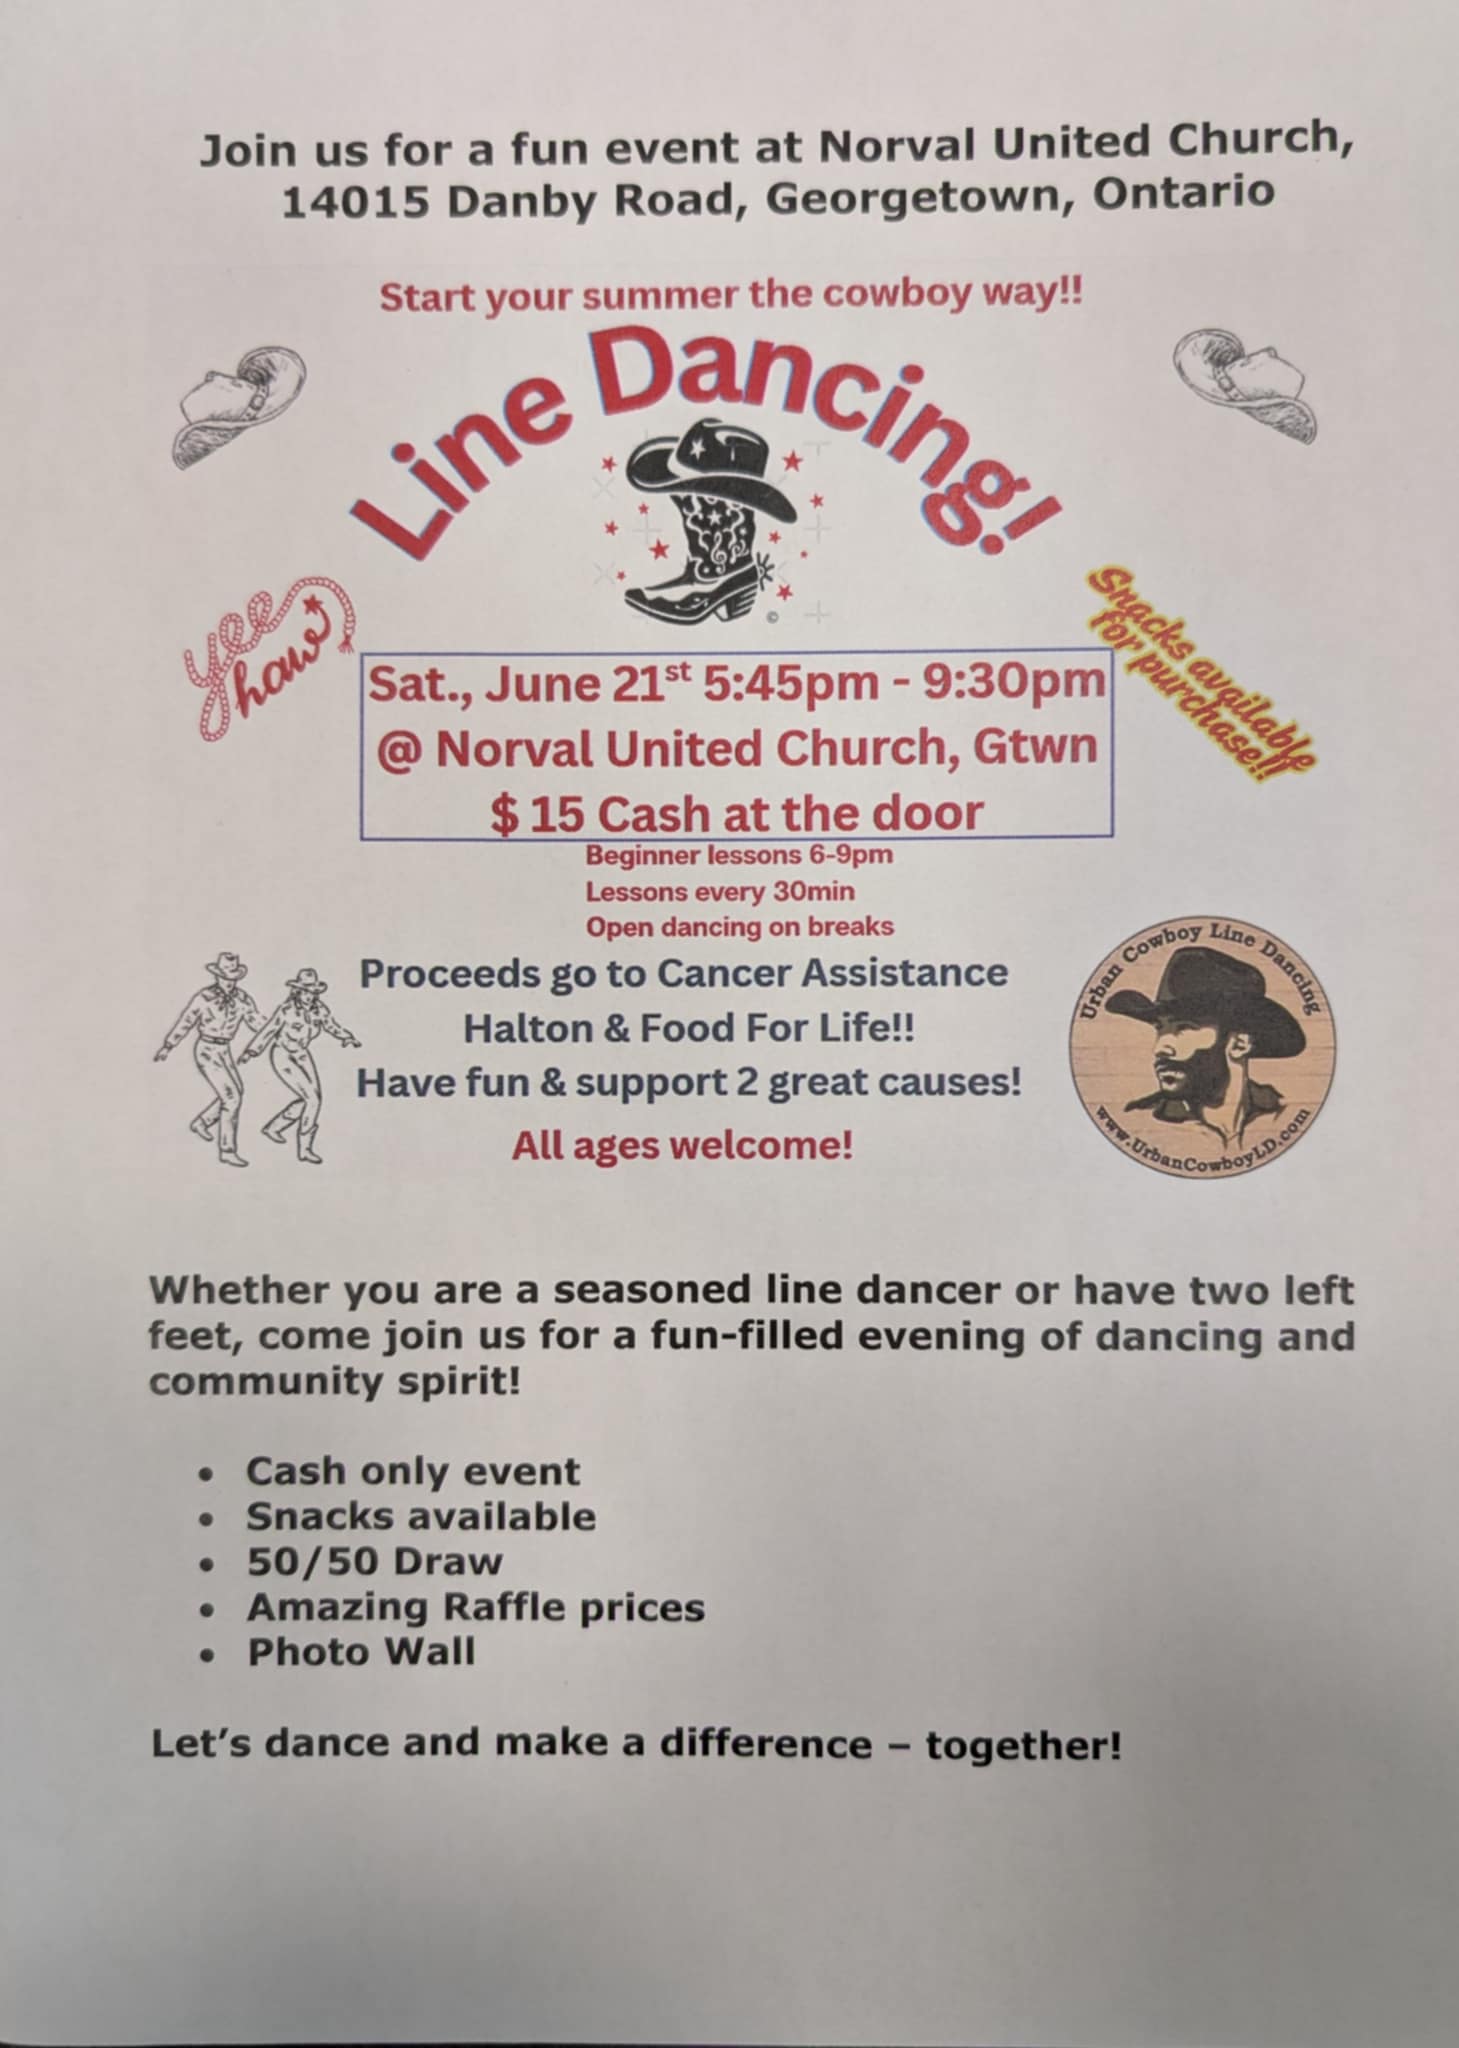 Join us for a fun event at Norval United Church,
14015 Danby Road, Georgetown, Ontario
Start your summer the cowboy way!!
Line Dancing!
yee
haw
Snacks available
for purchase!!
©
Sat., June 21st 5:45pm - 9:30pm
@ Norval United Church, Gtwn
$ 15 Cash at the door
Beginner lessons 6-9pm
Lessons every 30min
Open dancing on breaks
Proceeds go to Cancer Assistance
Halton & Food For Life!!
Have fun & support 2 great causes!
All ages welcome!
Urban Cowboy Line Dancing
www.UrbanCowboyLD.com
Whether you are a seasoned line dancer or have two left
feet, come join us for a fun-filled evening of dancing and
community spirit!
• Cash only event
• Snacks available
• 50/50 Draw
• Amazing Raffle prices
• Photo Wall
Let’s dance and make a difference – together!